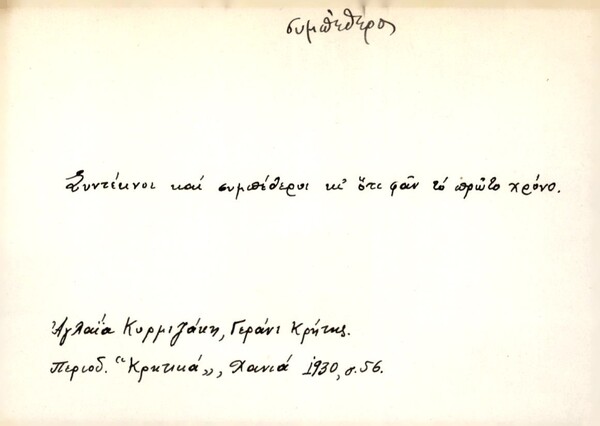 συμπέθερος
Συντέκνοι καί συμπέθεροι κι' ὅτι φᾶν τό πρῶτο χρόνο.
Ἀγλαΐα Κυρμιζάκη, Γεράνι Κρήτης.
Περιοδ. "Κρητικά", Χανιά 1930, σ.56.